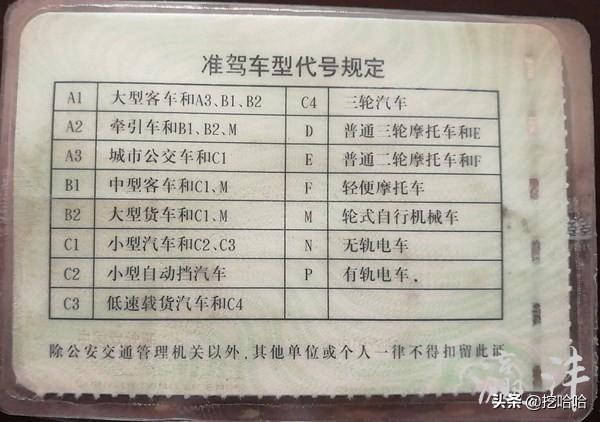 准驾车型代号规定
A1 大型客车和A3、B1、B2 C4 三轮汽车
A2 牵引车和B1、B2、M D 普通三轮摩托车和E
A3 城市公交车和C1 E 普通二轮摩托车和F
B1 中型客车和C1、M F 轻便摩托车
B2 大型货车和C1、M M 轮式自行机械车
C1 小型汽车和C2、C3 N 无轨电车
C2 小型自动挡汽车 P 有轨电车
C3 低速载货汽车和C4
除公安交通管理机关以外,其他单位或个人一律不得扣留此证
头条@挖哈哈